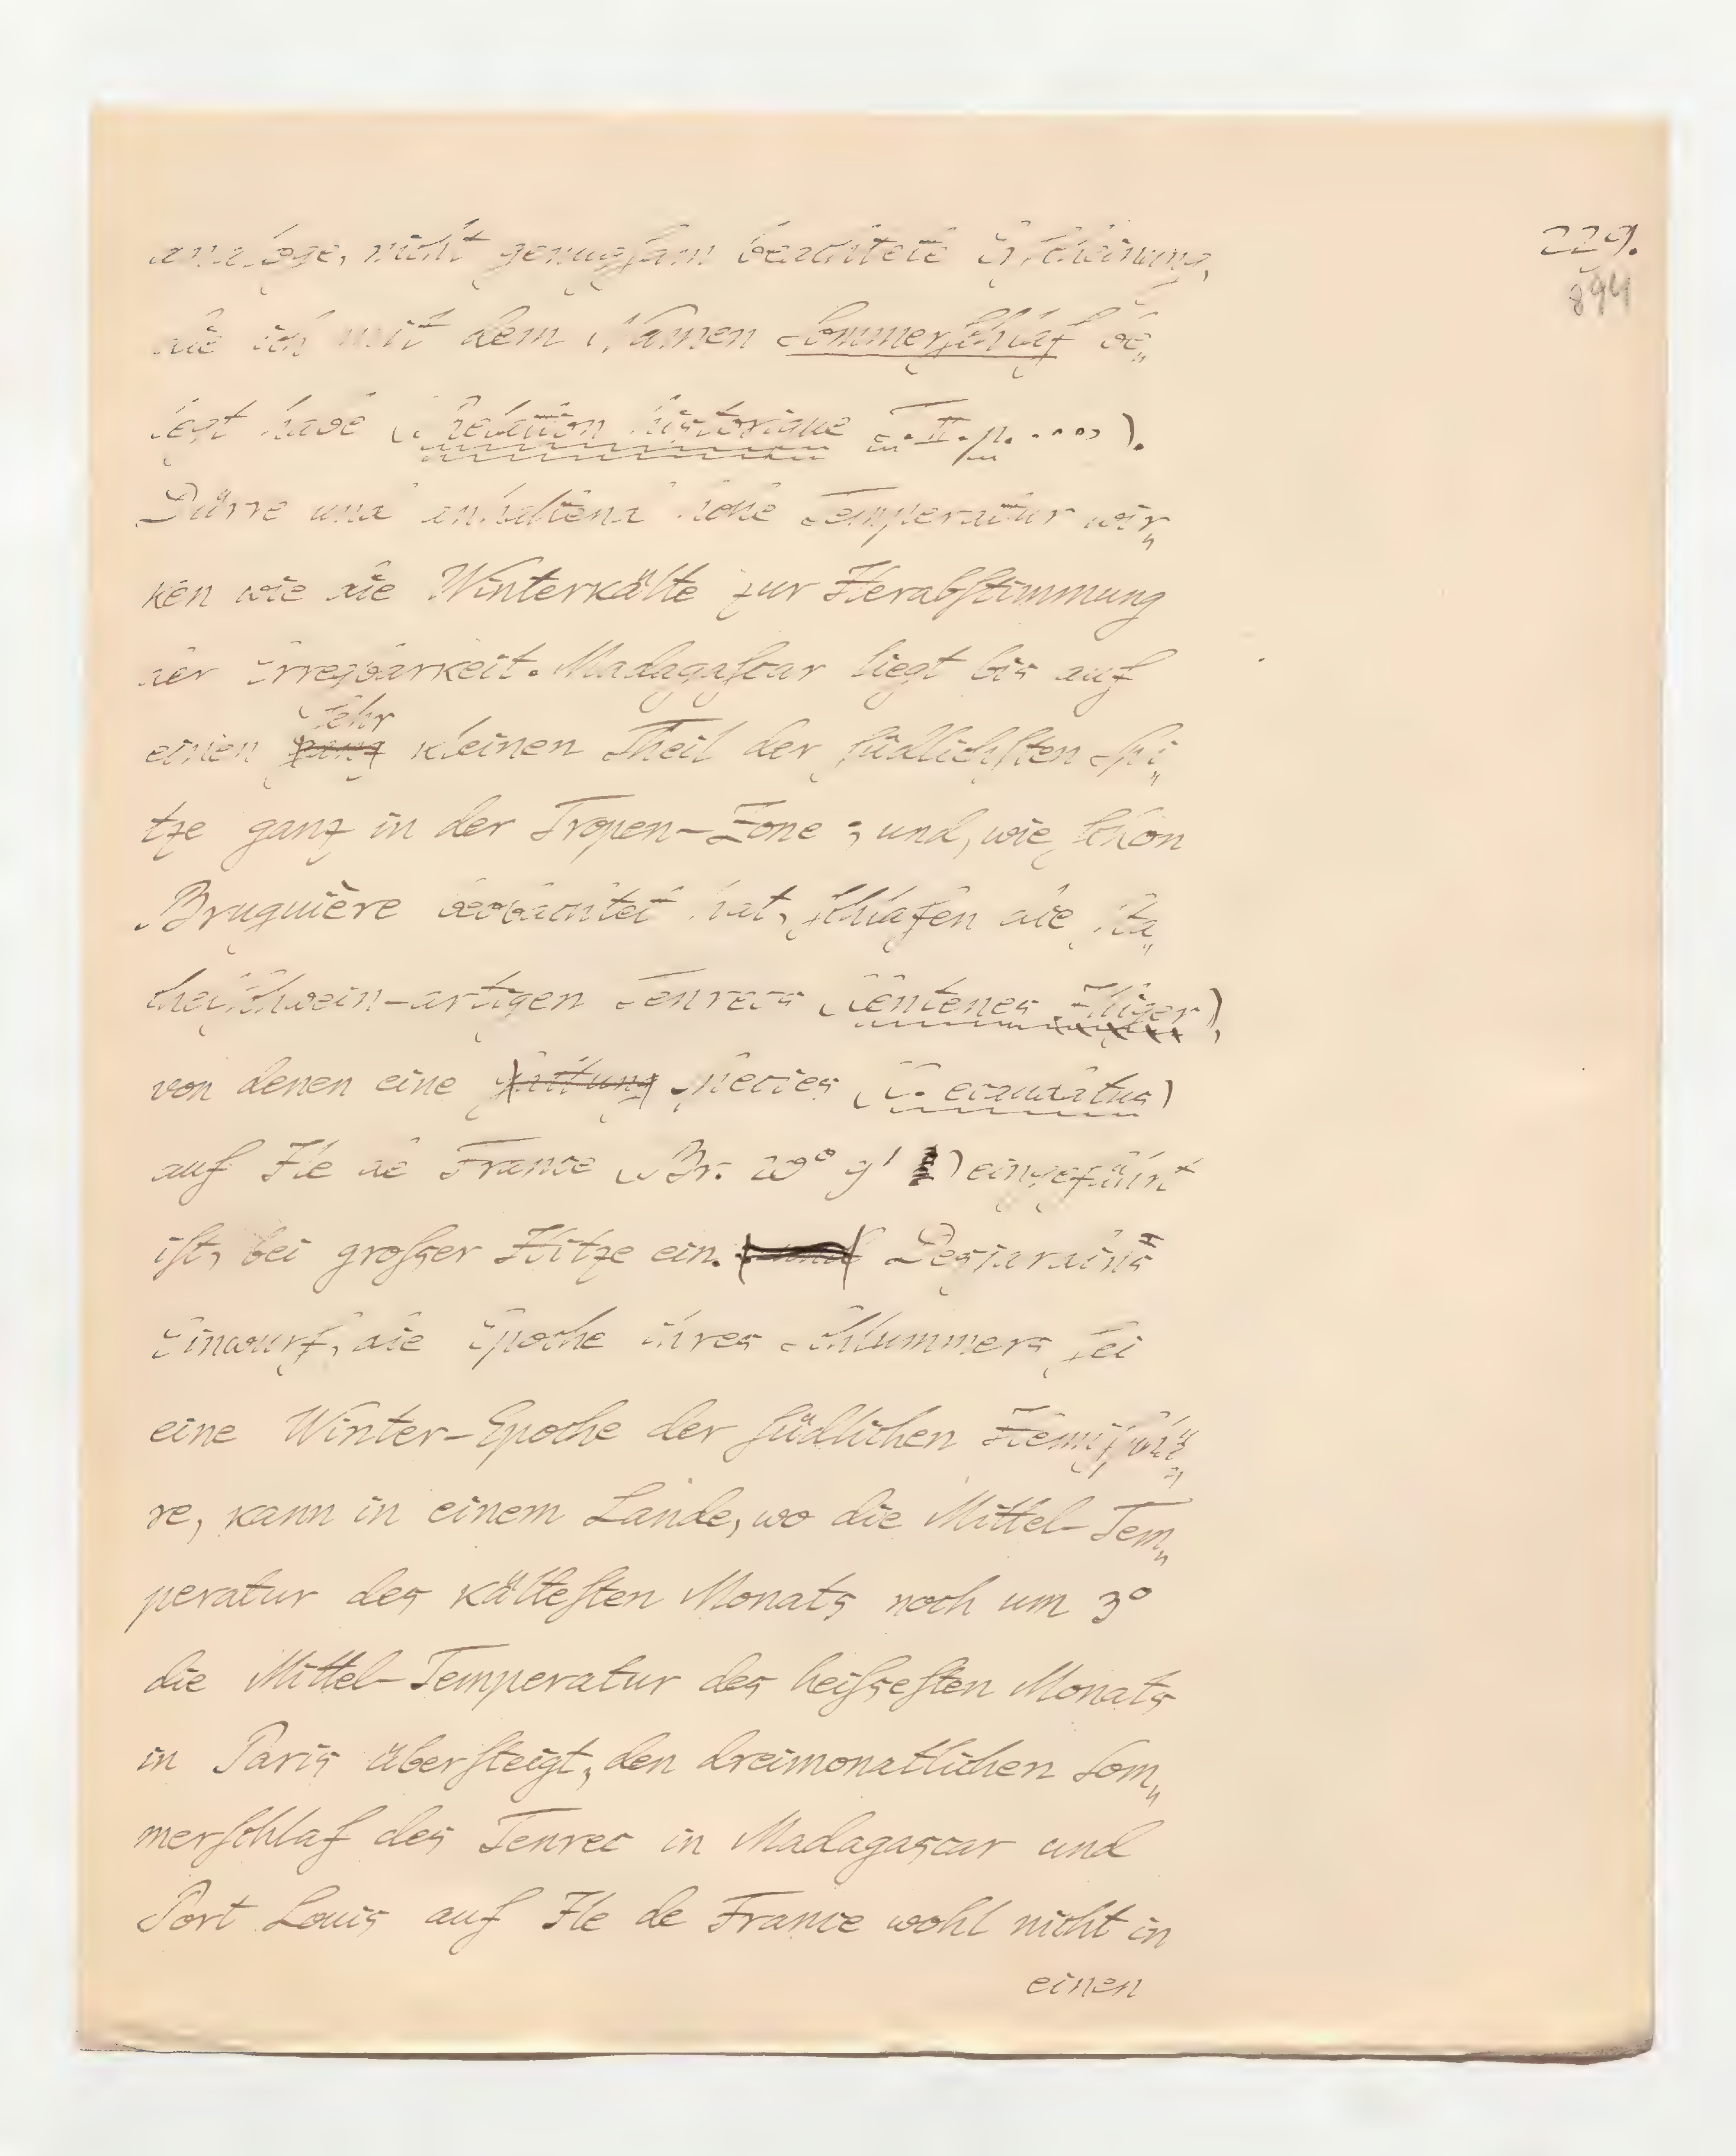 analoge, nicht genugsam beachtete Erscheinung,
229.
894
die ich mit dem Namen Sommerschlaf be„
legt habe (Relation historique T. II. p. ....).
Dürre und anhaltend hohe Temperatur wir„
ken wie die Winterkälte zur Herabſtimmung
der Erregbarkeit. Madagaſcar liegt bis auf
ſehr
einen ganz kleinen Theil der ſüdlichſten Spi„
tze ganz in der Tropen-Zone; und, wie ſchon
Bruguière beobachtet hat, ſchlafen die ſta„
chelſchwein-artigen Tenrecs (Centenes Illiger),
von denen eine Gattung Species (C. ecaudatus)
auf Ile de France (Br. 20° 9') eingeführt
iſt, bei groſser Hitze ein. und Desjardins
Einwurf, die Epoche ihres Schlummers ſei
eine Winter-Epoche der ſüdlichen Hemiſphä„
re, kann in einem Lande, wo die Mittel-Tem„
peratur des kälteſten Monats noch um 3°
die Mittel-Temperatur des heiſseſten Monats
in Paris überſteigt, den dreimonatlichen Som„
merſchlaf des Tenrec in Madagascar und
Port Louis auf Ile de France wohl nicht in
einen